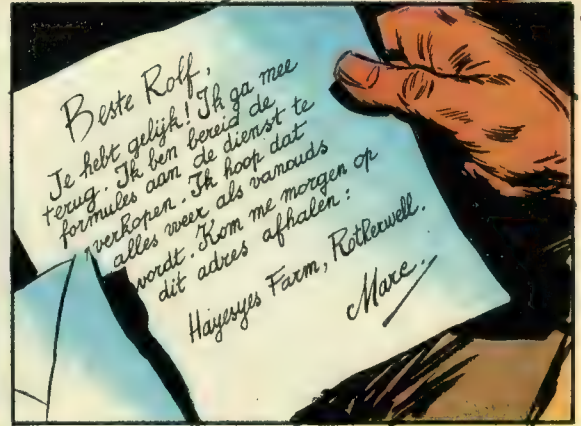 Beste Rolf,
Je hebt gelijk! Ik ga mee
terug. Ik ben bereid de
formules aan de dienst te
verkopen. Ik hoop dat
alles weer als vanouds
wordt. Kom me morgen op
dit adres afhalen:
Hayesyes Farm, Rotherwell.
Marc.